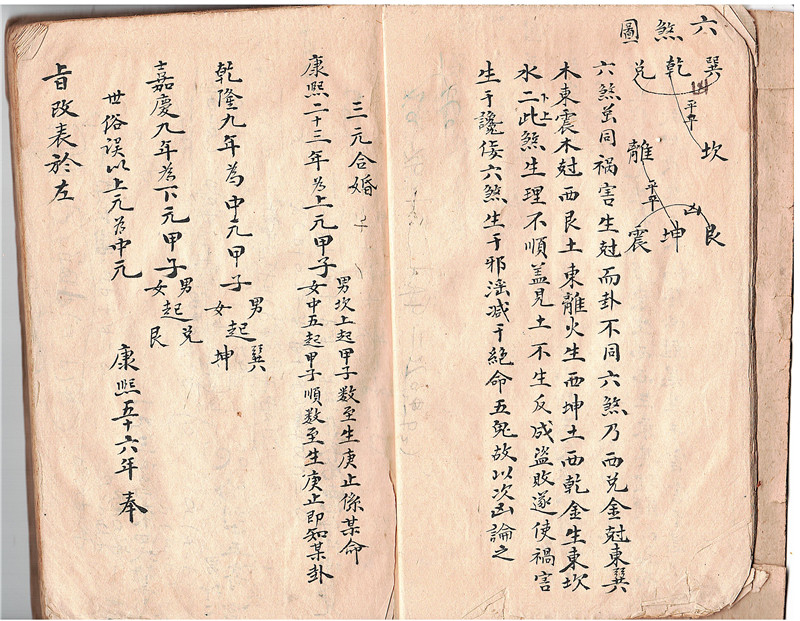 六煞圖
巽乾兌
坎離
艮坤震
凶
平平
平平
凶
六煞虽同禍害生尅而卦不同六煞乃西兌金尅東巽
木東震木尅西艮土東離火生西坤土西乾金生東坎
水二此煞生理不順盖見土不生反成盗敗遂使禍害
下上
生于讒佞六煞生于邪滛减于絕命五鬼故以次凶論之
三元合婚
康熙二十三年為上元甲子 男坎上起甲子数至生庚止係某命
女中五起甲子順数至生庚止即知某卦
乾隆九年為中元甲子 男起巽
女起坤
嘉慶九年為下元甲子 男起兌
女起艮
世俗误以上元為中元
康熙五十六年奉
旨改表於左